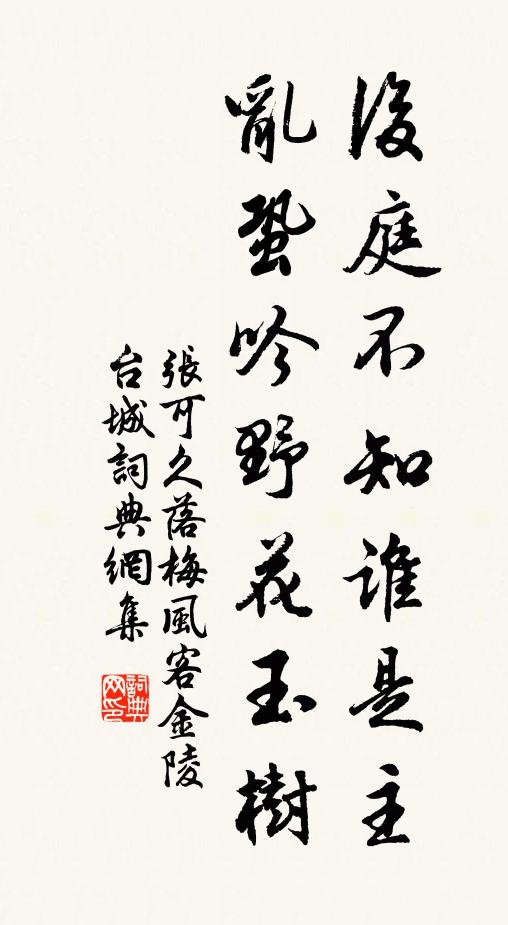 後庭不知誰是主
亂蛩吟野花玉樹
張可久落梅風客金陵
台城詞典網集
詞典
网印